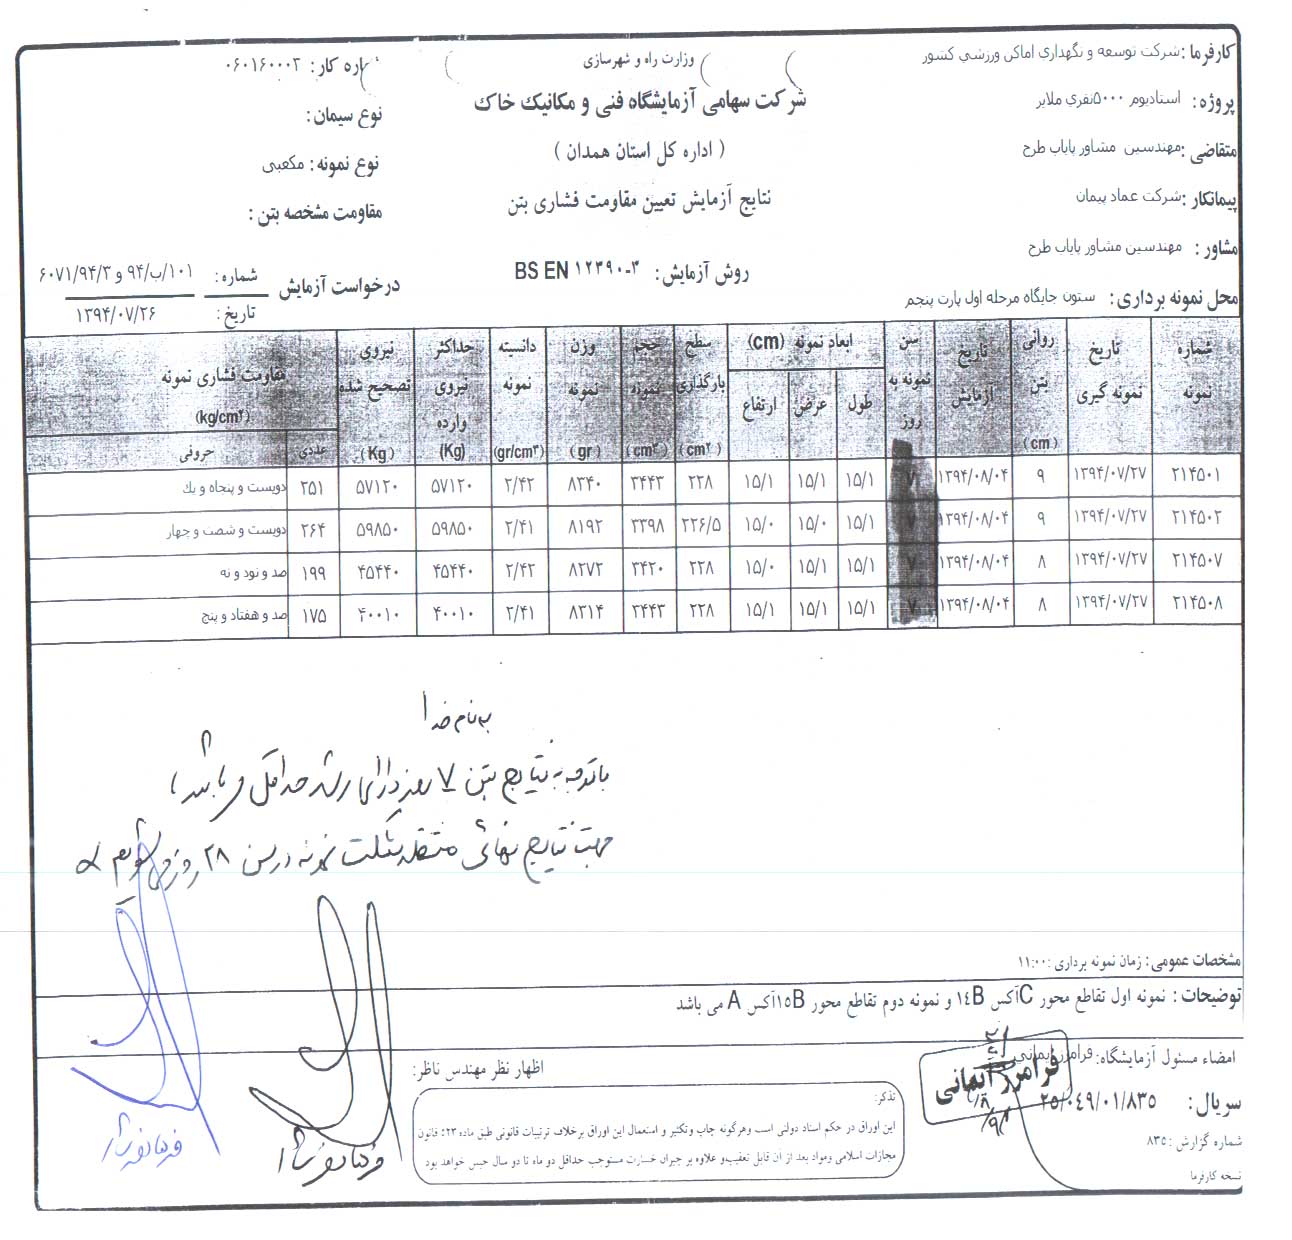 کارفرما : شرکت توسعه و نگهداری اماکن ورزشی کشور
پروژه : استادیوم ۵۰۰۰نفری ملایر
متقاضی : مهندسین مشاور پایاب طرح
پیمانکار : شرکت عماد پیمان
مشاور : مهندسین مشاور پایاب طرح
محل نمونه برداری : ستون جایگاه مرحله اول پارت پنجم
وزارت راه و شهرسازی
شرکت سهامی آزمایشگاه فنی و مکانیک خاک
( اداره کل استان همدان )
نتایج آزمایش تعیین مقاومت فشاری بتن
روش آزمایش : BS EN ۱۲۳۹۰-۳
شماره کار : ۰۶۰۱۶۰۰۰۳
نوع سیمان :
نوع نمونه : مکعبی
مقاومت مشخصه بتن :
درخواست آزمایش
شماره : ۱۰۱/ب/۹۴ و ۶۰۷۱/۹۴/۳
تاریخ : ۱۳۹۴/۰۷/۲۶
شماره نمونه | تاریخ نمونه گیری | روانی بتن (cm) | تاریخ آزمایش | سن نمونه به روز | ابعاد نمونه (cm) طول عرض ارتفاع | سطح بارگذاری (cm۲) | حجم نمونه (cm۳) | وزن نمونه (gr) | دانسیته نمونه (gr/cm۳) | حداکثر نیروی وارده (Kg) | نیروی تصحیح شده (Kg) | مقاومت فشاری نمونه (kg/cm۲) عددی حروفی
۲۱۴۵۰۱ | ۱۳۹۴/۰۷/۲۷ | ۹ | ۱۳۹۴/۰۸/۰۴ | ۷ | ۱۵/۱ | ۱۵/۱ | ۱۵/۱ | ۲۲۸ | ۳۴۴۳ | ۸۳۴۰ | ۲/۴۲ | ۵۷۱۲۰ | ۵۷۱۲۰ | ۲۵۱ | دویست و پنجاه و یک
۲۱۴۵۰۲ | ۱۳۹۴/۰۷/۲۷ | ۹ | ۱۳۹۴/۰۸/۰۴ | ۷ | ۱۵/۱ | ۱۵/۰ | ۱۵/۰ | ۲۲۶/۵ | ۳۳۹۸ | ۸۱۹۲ | ۲/۴۱ | ۵۹۸۵۰ | ۵۹۸۵۰ | ۲۶۴ | دویست و شصت و چهار
۲۱۴۵۰۷ | ۱۳۹۴/۰۷/۲۷ | ۸ | ۱۳۹۴/۰۸/۰۴ | ۷ | ۱۵/۱ | ۱۵/۱ | ۱۵/۰ | ۲۲۸ | ۳۴۲۰ | ۸۲۷۲ | ۲/۴۲ | ۴۵۴۴۰ | ۴۵۴۴۰ | ۱۹۹ | صد و نود و نه
۲۱۴۵۰۸ | ۱۳۹۴/۰۷/۲۷ | ۸ | ۱۳۹۴/۰۸/۰۴ | ۷ | ۱۵/۱ | ۱۵/۱ | ۱۵/۱ | ۲۲۸ | ۳۴۴۳ | ۸۳۱۴ | ۲/۴۱ | ۴۰۰۱۰ | ۴۰۰۱۰ | ۱۷۵ | صد و هفتاد و پنج
به نام خدا
با توجه به نتایج بتن ۷ روزه دارای رشد حداقل می باشد
جهت نتایج نهائی منتظر شکست نمونه در سن ۲۸ روز می شویم
مشخصات عمومی : زمان نمونه برداری : ۱۱:۰۰
توضیحات : نمونه اول تقاطع محور Cآکس ۱۴B و نمونه دوم تقاطع محور ۱۵Bآکس A می باشد
امضاء مسئول آزمایشگاه: فرامرز ایمانی
فرامرز ایمانی
سریال: ۲۵/۰۴۹/۰۱/۸۳۵
شماره گزارش : ۸۳۵
نسخه کارفرما
اظهار نظر مهندس ناظر:
تذکر:
این اوراق در حکم اسناد دولتی است وهرگونه چاپ وتکثیر و استعمال این اوراق برخلاف ترتیبات قانونی طبق ماده ۵۲۳ قانون
مجازات اسلامی ومواد بعد از آن قابل تعقیب و علاوه بر جبران خسارت مستوجب حداقل دو ماه تا دو سال حبس خواهد بود